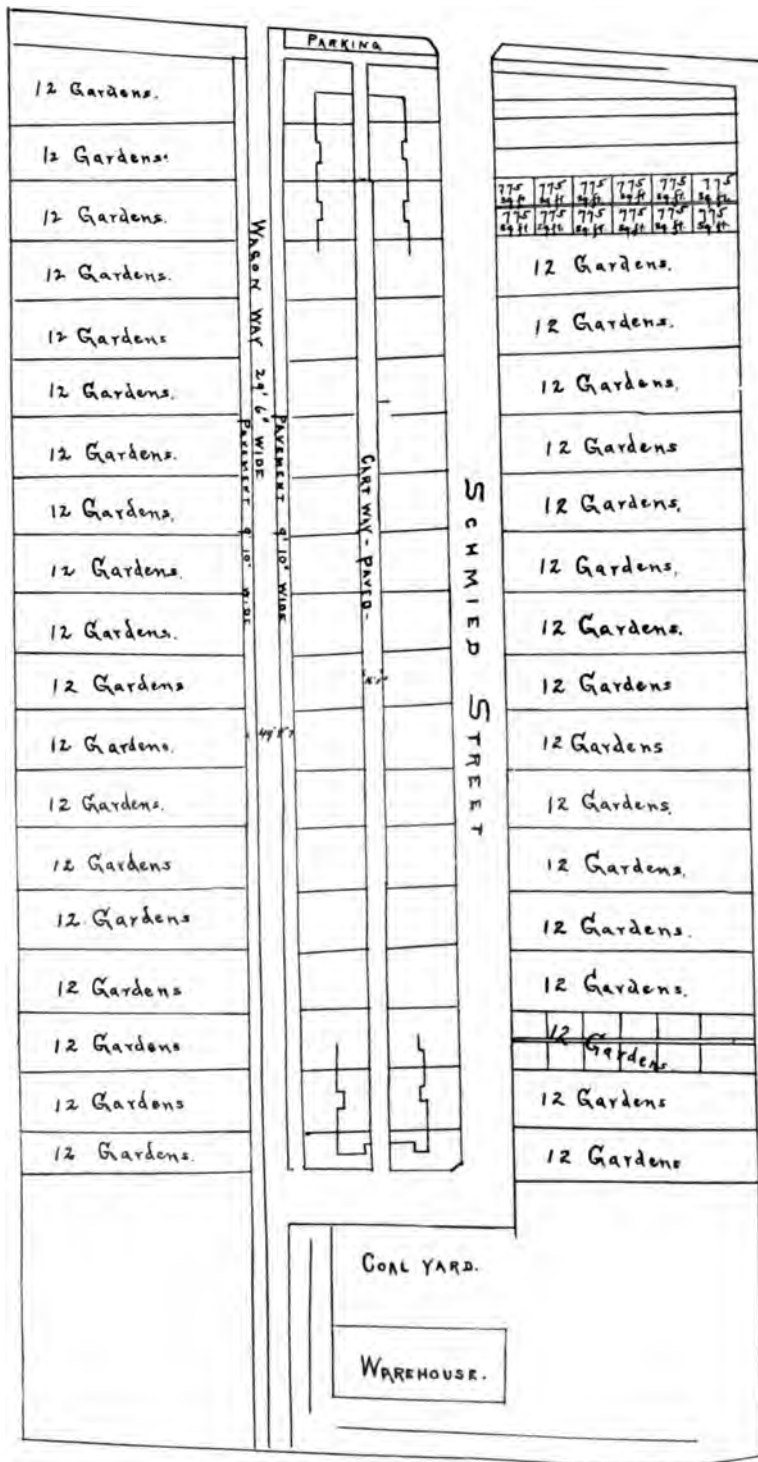 PARKING
12 Gardens.
12 Gardens.
12 Gardens.
12 Gardens.
12 Gardens
12 Gardens.
12 Gardens.
12 Gardens.
12 Gardens.
12 Gardens.
12 Gardens
12 Gardens.
12 Gardens.
12 Gardens
12 Gardens
12 Gardens
12 Gardens
12 Gardens
12 Gardens.
WAGON WAY 29' 6" WIDE
PAVEMENT 9' 10" WIDE
PAVEMENT 9' 10" WIDE
49' 2"
CART WAY - PAVED -
SCHMIED STREET
775 sq ft. 775 sq ft. 775 sq ft. 775 sq ft. 775 sq ft. 775 sq ft.
775 sq ft. 775 sq ft. 775 sq ft. 775 sq ft. 775 sq ft. 775 sq ft.
12 Gardens.
12 Gardens.
12 Gardens.
12 Gardens
12 Gardens.
12 Gardens.
12 Gardens.
12 Gardens
12 Gardens
12 Gardens.
12 Gardens.
12 Gardens.
12 Gardens.
12 Gardens.
12 Gardens
12 Gardens
COAL YARD.
WAREHOUSE.